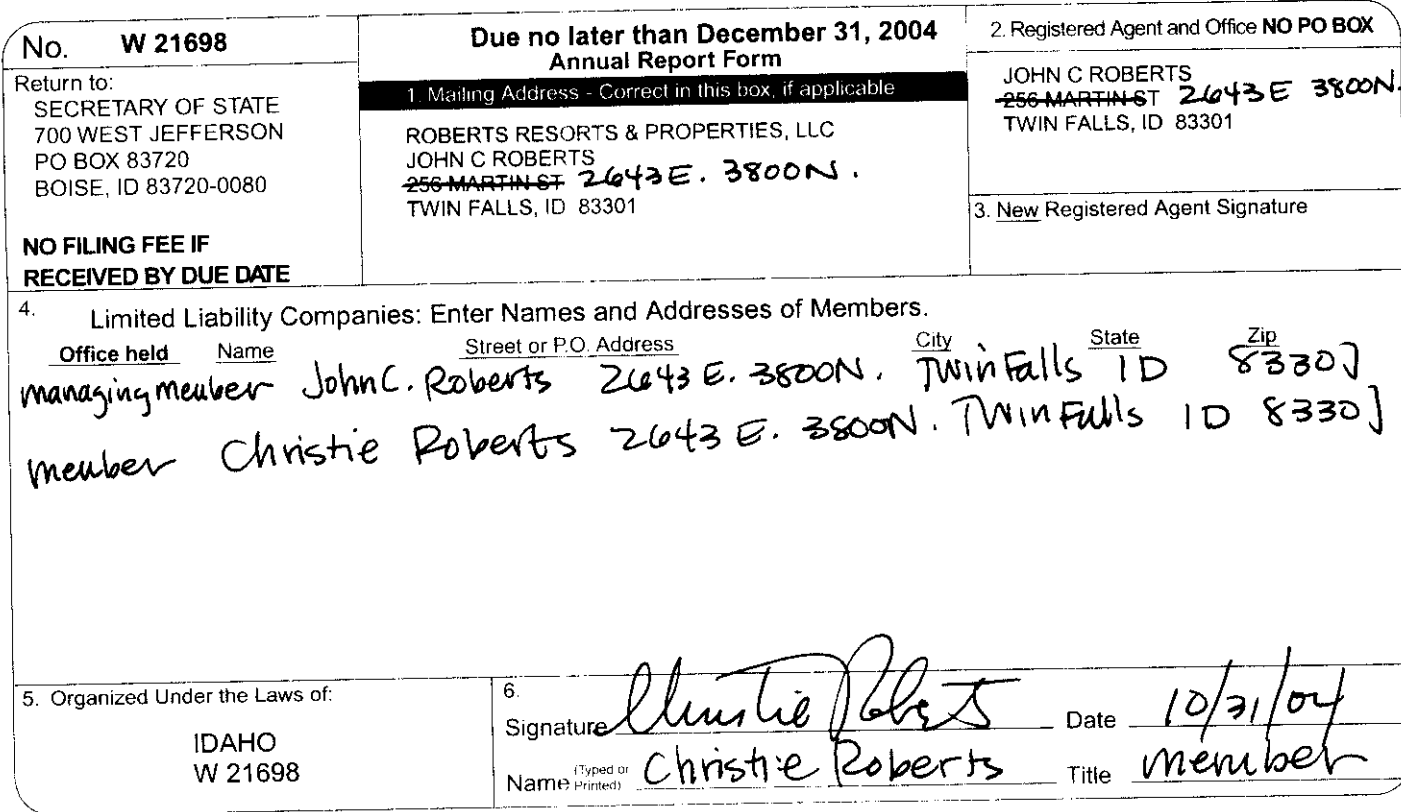 No. W 21698
Return to:
SECRETARY OF STATE
700 WEST JEFFERSON
PO BOX 83720
BOISE, ID 83720-0080
NO FILING FEE IF
RECEIVED BY DUE DATE
Due no later than December 31, 2004
Annual Report Form
1. Mailing Address - Correct in this box, if applicable
ROBERTS RESORTS & PROPERTIES, LLC
JOHN C ROBERTS
256 MARTIN ST 2643 E. 3800 N.
TWIN FALLS, ID 83301
2. Registered Agent and Office NO PO BOX
JOHN C ROBERTS
256 MARTIN ST 2643 E 3800N.
TWIN FALLS, ID 83301
3. New Registered Agent Signature
4. Limited Liability Companies: Enter Names and Addresses of Members.
Office held Name Street or P.O. Address City State Zip
managing member John C. Roberts 2643 E. 3800N. Twin Falls ID 83301
member Christie Roberts 2643 E. 3800N. Twin Falls ID 83301
5. Organized Under the Laws of:
IDAHO
W 21698
6.
Signature Christie Roberts Date 10/31/04
Name (Typed or Printed) Christie Roberts Title member